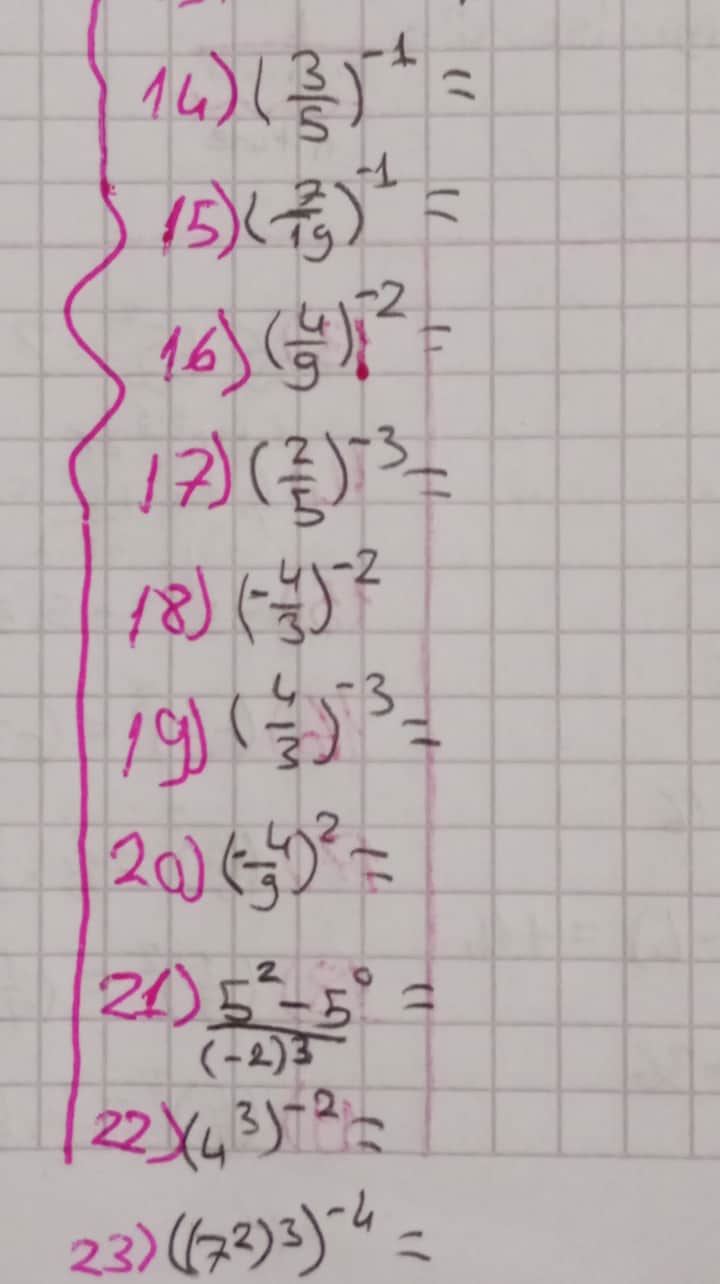 14) (3/5)^-1 =
15) (-7/19)^-1 =
16) (4/9)^-2 =
17) (2/5)^-3 =
18) (-4/3)^-2
19) (4/3)^-3 =
20) (-4/9)^2 =
21) (5^2 - 5^0)/(-2)^3 =
22) (4^3)^-2 =
23) ((7^2)^3)^-4 =